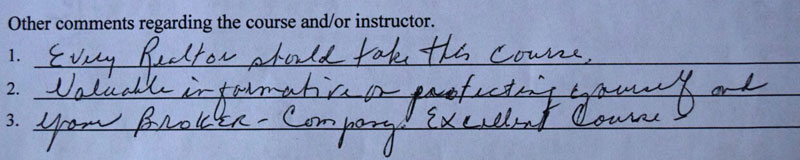 Other comments regarding the course and/or instructor.
1. Every Realtor should take this course.
2. Valuable information on protecting yourself and
3. your BROKER - Company. Excellent Course